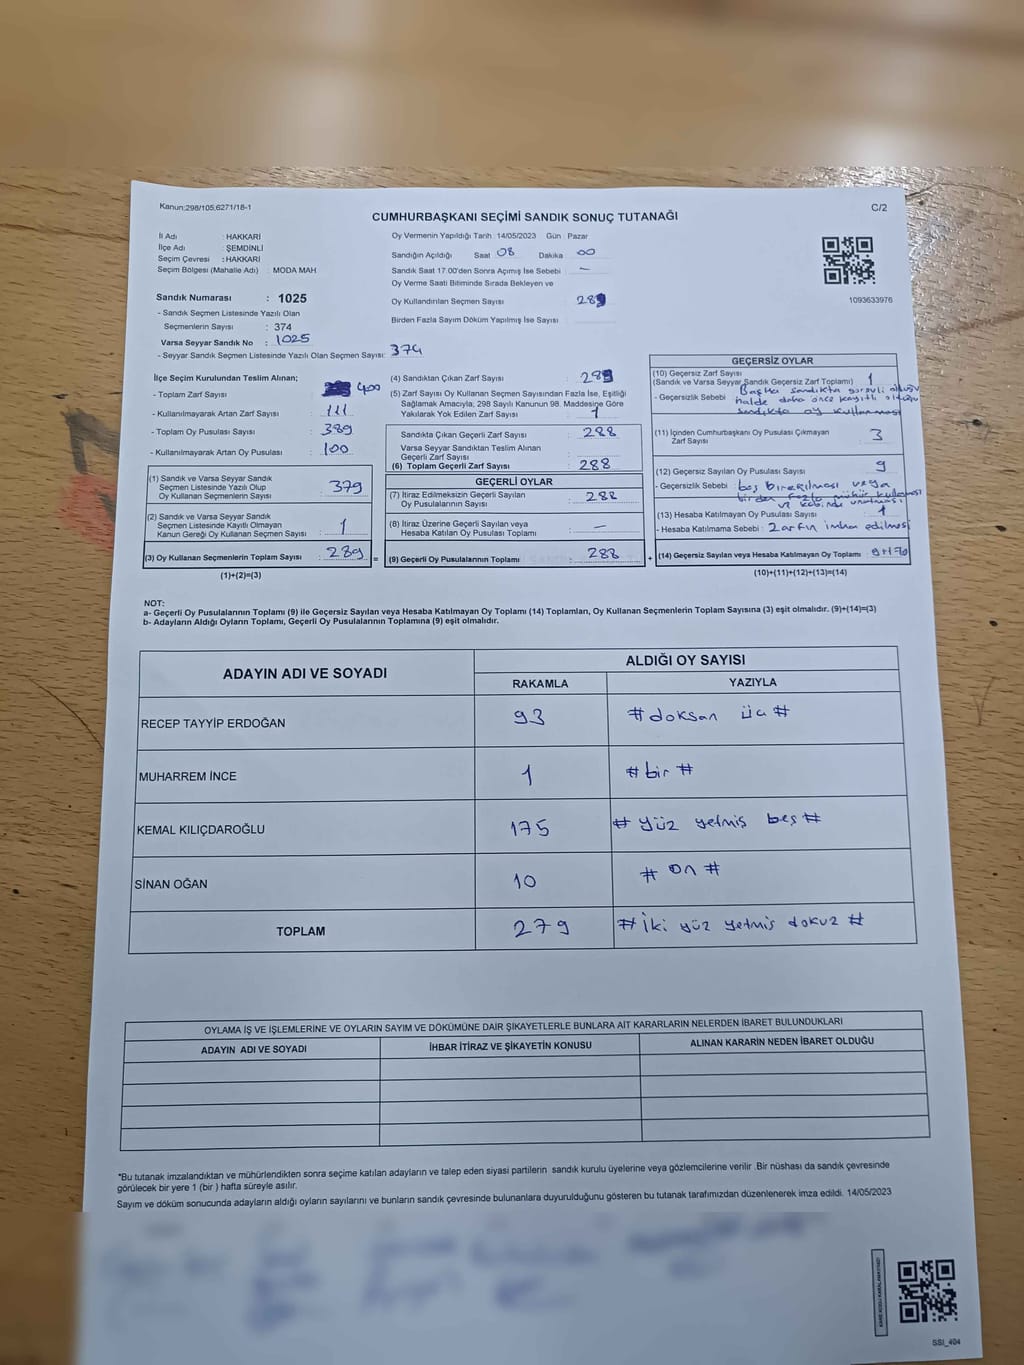 Kanun:298/105,6271/18-1
C/2
CUMHURBAŞKANI SEÇİMİ SANDIK SONUÇ TUTANAĞI
İl Adı : HAKKARİ
İlçe Adı : ŞEMDİNLİ
Seçim Çevresi : HAKKARİ
Seçim Bölgesi (Mahalle Adı) : MODA MAH
Sandık Numarası : 1025
- Sandık Seçmen Listesinde Yazılı Olan
Seçmenlerin Sayısı : 374
Varsa Seyyar Sandık No : 1025
- Seyyar Sandık Seçmen Listesinde Yazılı Olan Seçmen Sayısı: 374
Oy Vermenin Yapıldığı Tarih : 14/05/2023 Gün : Pazar
Sandığın Açıldığı Saat 08 Dakika 00
Sandık Saat 17.00'den Sonra Açımış İse Sebebi : —
Oy Verme Saati Bitiminde Sırada Bekleyen ve
Oy Kullandırılan Seçmen Sayısı : 289
Birden Fazla Sayım Döküm Yapılmış İse Sayısı :
1093633976
İlçe Seçim Kurulundan Teslim Alınan;
- Toplam Zarf Sayısı : 400
- Kullanılmayarak Artan Zarf Sayısı : 111
- Toplam Oy Pusulası Sayısı : 389
- Kullanılmayarak Artan Oy Pusulası : 100
(1) Sandık ve Varsa Seyyar Sandık
Seçmen Listesinde Yazılı Olup
Oy Kullanan Seçmenlerin Sayısı : 379
(2) Sandık ve Varsa Seyyar Sandık
Seçmen Listesinde Kayıtlı Olmayan
Kanun Gereği Oy Kullanan Seçmen Sayısı : 1
(3) Oy Kullanan Seçmenlerin Toplam Sayısı : 289 =
(1)+(2)=(3)
(4) Sandıktan Çıkan Zarf Sayısı : 289
(5) Zarf Sayısı Oy Kullanan Seçmen Sayısından Fazla İse, Eşitliği
Sağlamak Amacıyla; 298 Sayılı Kanunun 98. Maddesine Göre
Yakılarak Yok Edilen Zarf Sayısı : 1
Sandıkta Çıkan Geçerli Zarf Sayısı : 288
Varsa Seyyar Sandıktan Teslim Alınan
Geçerli Zarf Sayısı :
(6) Toplam Geçerli Zarf Sayısı : 288
GEÇERLİ OYLAR
(7) İtiraz Edilmeksizin Geçerli Sayılan
Oy Pusulalarının Sayısı : 288
(8) İtiraz Üzerine Geçerli Sayılan veya
Hesaba Katılan Oy Pusulası Toplamı : —
(9) Geçerli Oy Pusulalarının Toplamı : 288 +
GEÇERSİZ OYLAR
(10) Geçersiz Zarf Sayısı
(Sandık ve Varsa Seyyar Sandık Geçersiz Zarf Toplamı) : 1
- Geçersizlik Sebebi : Başka sandıkta görevli olduğu
halde daha önce kayıtlı olduğu
sandıkta oy kullanması
(11) İçinden Cumhurbaşkanı Oy Pusulası Çıkmayan
Zarf Sayısı : 3
(12) Geçersiz Sayılan Oy Pusulası Sayısı : 9
- Geçersizlik Sebebi : boş bırakılması veya
birden fazla mühür kullanması
(13) Hesaba Katılmayan Oy Pusulası Sayısı : 1
- Hesaba Katılmama Sebebi : Zarfın imha edilmesi
(14) Geçersiz Sayılan veya Hesaba Katılmayan Oy Toplamı :
(10)+(11)+(12)+(13)=(14)
NOT:
a- Geçerli Oy Pusulalarının Toplamı (9) ile Geçersiz Sayılan veya Hesaba Katılmayan Oy Toplamı (14) Toplamları, Oy Kullanan Seçmenlerin Toplam Sayısına (3) eşit olmalıdır. (9)+(14)=(3)
b- Adayların Aldığı Oyların Toplamı, Geçerli Oy Pusulalarının Toplamına (9) eşit olmalıdır.
ADAYIN ADI VE SOYADI ALDIĞI OY SAYISI
RAKAMLA YAZIYLA
RECEP TAYYİP ERDOĞAN 93 #doksan üç#
MUHARREM İNCE 1 #bir#
KEMAL KILIÇDAROĞLU 175 #yüz yetmiş beş#
SİNAN OĞAN 10 #on#
TOPLAM 279 #İki yüz yetmiş dokuz#
OYLAMA İŞ VE İŞLEMLERİNE VE OYLARIN SAYIM VE DÖKÜMÜNE DAİR ŞİKAYETLERLE BUNLARA AİT KARARLARIN NELERDEN İBARET BULUNDUKLARI
ADAYIN ADI VE SOYADI İHBAR İTİRAZ VE ŞİKAYETİN KONUSU ALINAN KARARIN NEDEN İBARET OLDUĞU
*Bu tutanak imzalandıktan ve mühürlendikten sonra seçime katılan adayların ve talep eden siyasi partilerin sandık kurulu üyelerine veya gözlemcilerine verilir .Bir nüshası da sandık çevresinde
görülecek bir yere 1 (bir ) hafta süreyle asılır.
Sayım ve döküm sonucunda adayların aldığı oyların sayılarını ve bunların sandık çevresinde bulunanlara duyurulduğunu gösteren bu tutanak tarafımızdan düzenlenerek imza edildi. 14/05/2023
KARE KODU KARALAMAYINIZ!
SSİ_404